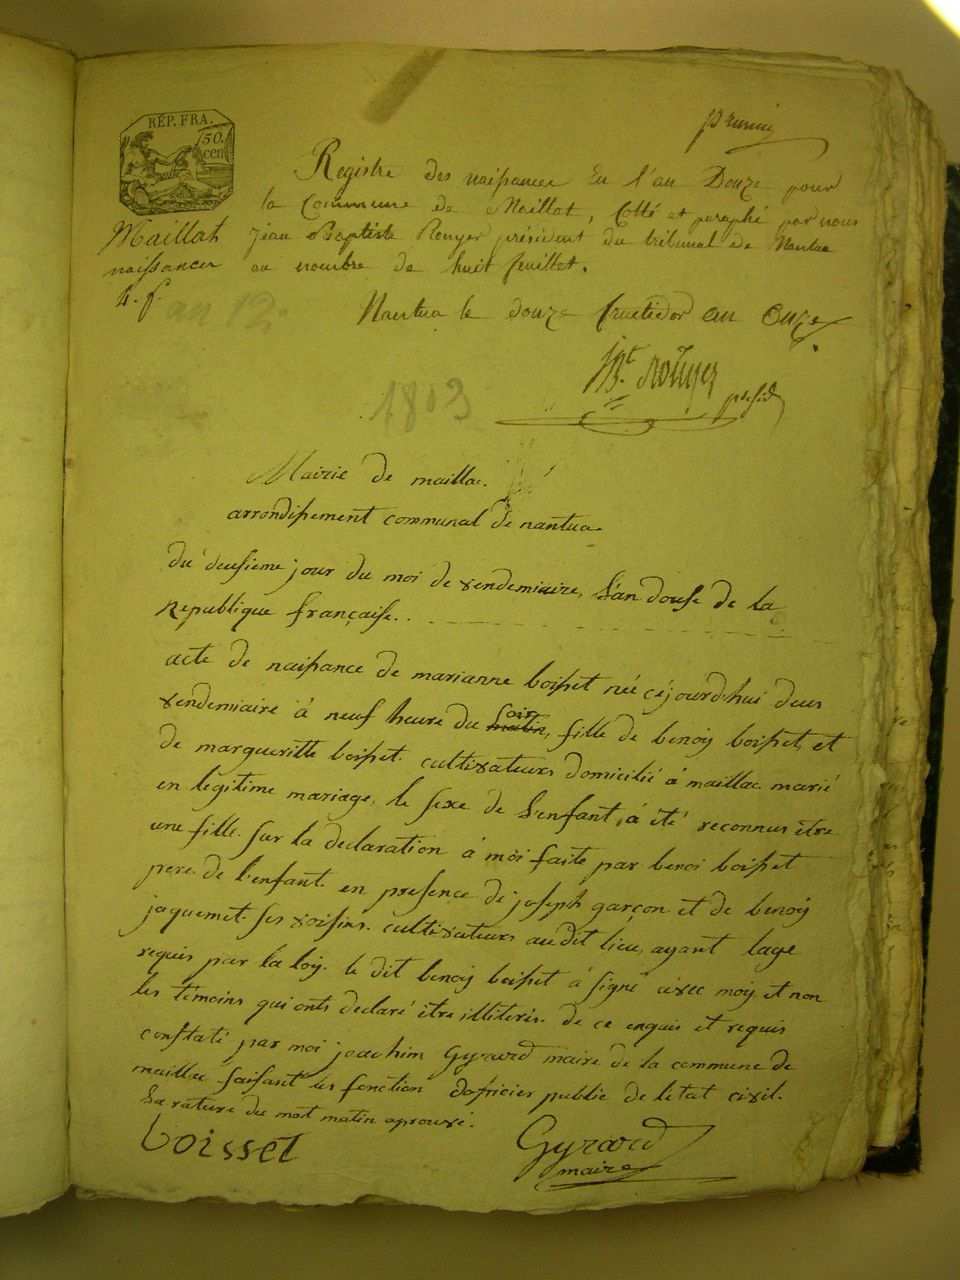 RÉP. FRA.
50
cen
premier
Registre des naissances En l'an Douze pour
la Commune de Maillat, Cotté et paraphé par nous
Jean Baptiste Rouyer président du tribunal de Nantua
au nombre de huit feuillet.
Maillat
naissances
4. f.
an 12.
Nantua le douze fructidor an Onze
JBt. Rouyer
présid
1803
Mairie de maillac.
arrondissement communal de nantua
du deusieme jour du moi de vendemiaire, L'an douse de la
Republique française..
acte de naissance de marianne boisset née cejourd'hui deus
vendemiaire à neuf heure du matin soir, fille de benoy boisset, et
de margueritte boisset. cultivateurs domicilié à maillac marié
en légitime mariage, le sexe de L'enfant, à été reconnus être
une fille. sur la declaration à moi faite par benoi boisset
pere de l'enfant. en presence de joseph garçon et de benoy
jaquemet. ses voisins. cultivateurs audit lieu, ayant lage
requis par la loy. le dit benoy boisset à signé avec moy et non
les témoins qui onts declaré être illiteres. de ce enquis et requis
constaté par moi joachim Gyrard maire de la commune de
maillac faisant les fonction d'officier public de létat civil.
La rature du mot matin aprouvé.
boisset
Gyrard
maire